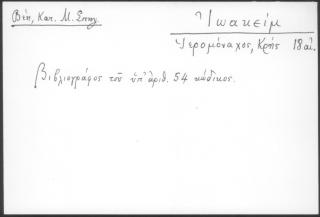 Βέη, Κατ. Μ. Σπηλ.
Ἰωακείμ
Ἱερομόναχος, Κρής 18 αἰ.
Βιβλιογράφος τοῦ ὑπ' ἀριθ. 54 κώδικος.